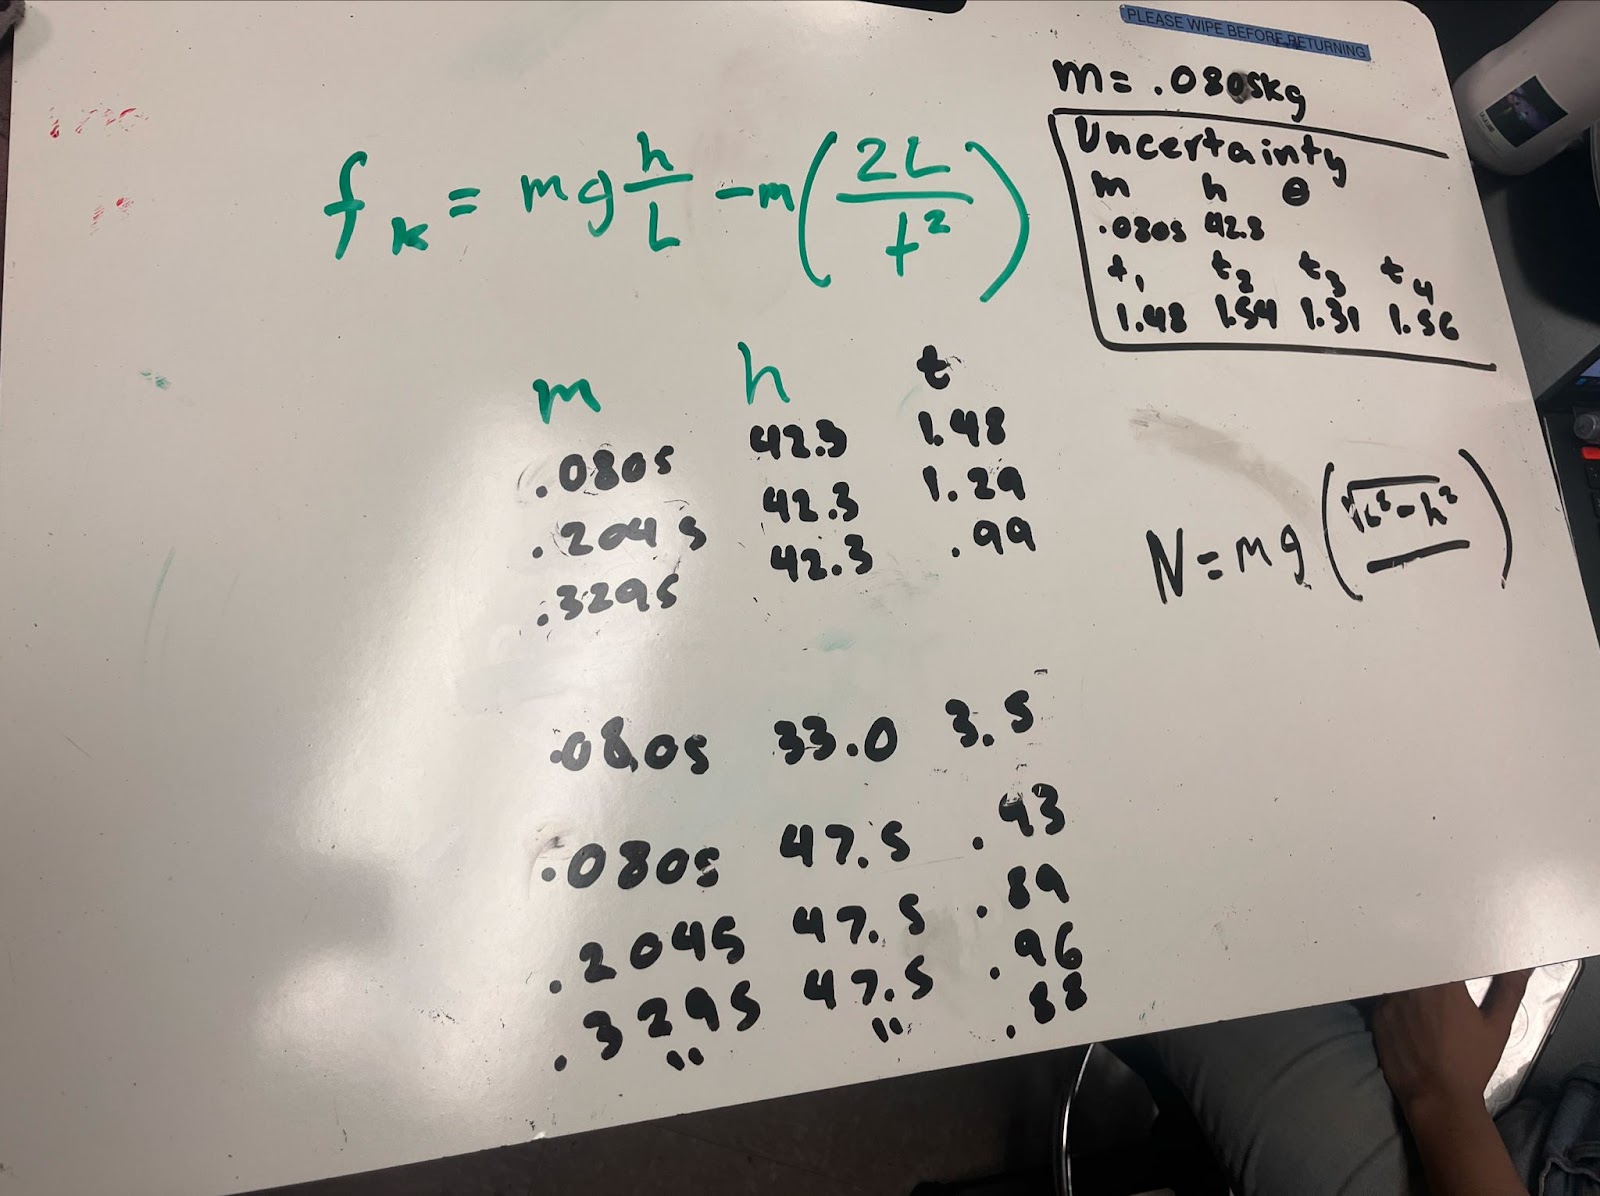 PLEASE WIPE BEFORE RETURNING
m= .0805kg
Uncertainty
m h θ
.0805 42.3
t₁ t₂ t₃ t₄
1.48 1.54 1.31 1.56
fₖ = mg h/L - m(2L/t²)
m h t
.0805 42.3 1.48
.2045 42.3 1.29
.3295 42.3 .99
N = mg(√L²-h²)
.0805 33.0 3.5
.0805 47.5 .93
.2045 47.5 .89
.3295 47.5 .96
" " .88